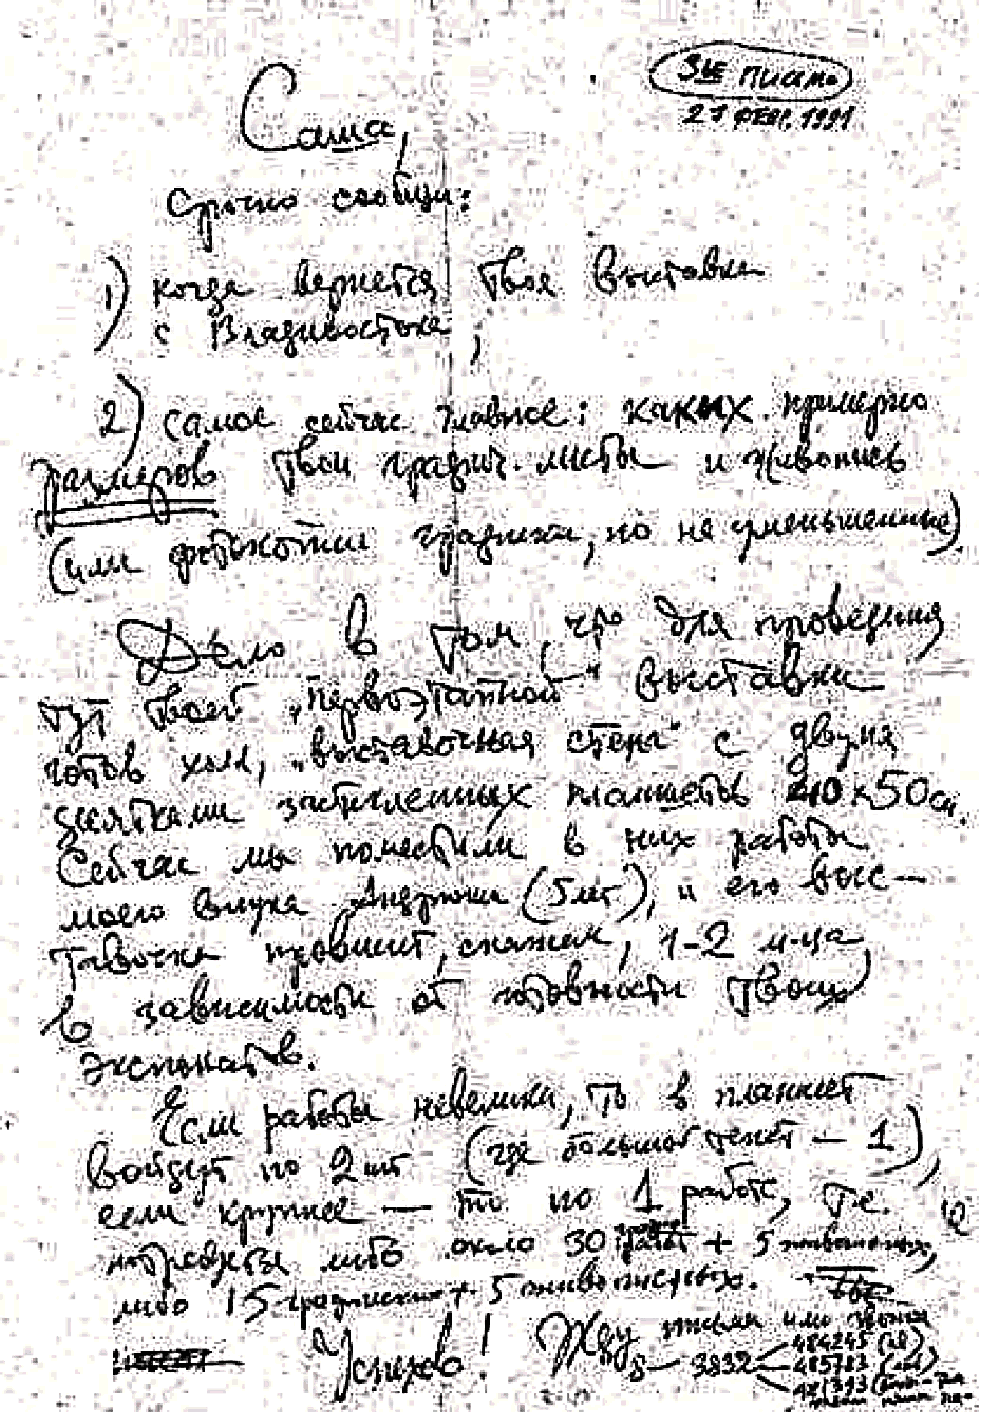 3ье письмо
27 февр. 1991
Саша,
Срочно сообщи:
1) когда вернется твоя выставка
с Владивостока,
2) самое сейчас главное: каких примерно
размеров твои графич. листы и живопись
(или фотокопии графики, но не уменьшенные).
Дело в том, что для проведения
тут твоей „первоэтапной" выставки
готов холл, „выставочная стена" с двумя
десятками застекленных планшетов 40×50см.
Сейчас мы поместили в них работы
моего внука Андрюши (5 лет), и его выс-
тавочка провисит, скажем, 1-2 м-ца,
в зависимости от готовности твоих
экспонатов.
Если работы невелики, то в планшет
войдут по 2 шт (где большой текст – 1),
если крупнее — то по 1 работе, т.е.
потребуется либо около 30 работ + 5 живописных,
либо 15 графических + 5 живописных.
Успехов! Жду письма или звонка
8 — 3832 484245
485783